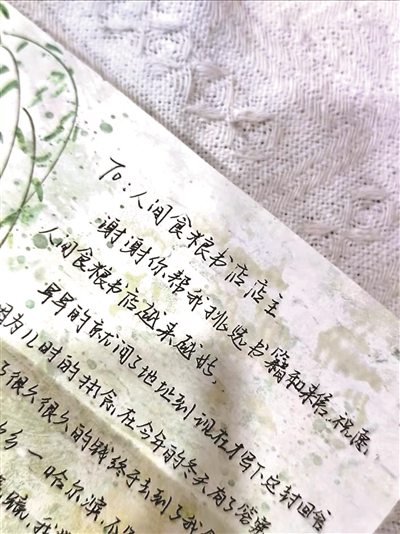 To:人间食粮书店店主
谢谢你帮我挑选书籍和来信,祝愿
人间食粮书店越来越好,
早早的就问了地址到现在才写下这封回信
因为儿时的执念,在今年的冬天有了答案
了很久很久的钱终于去到了我
一哈尔滨,不